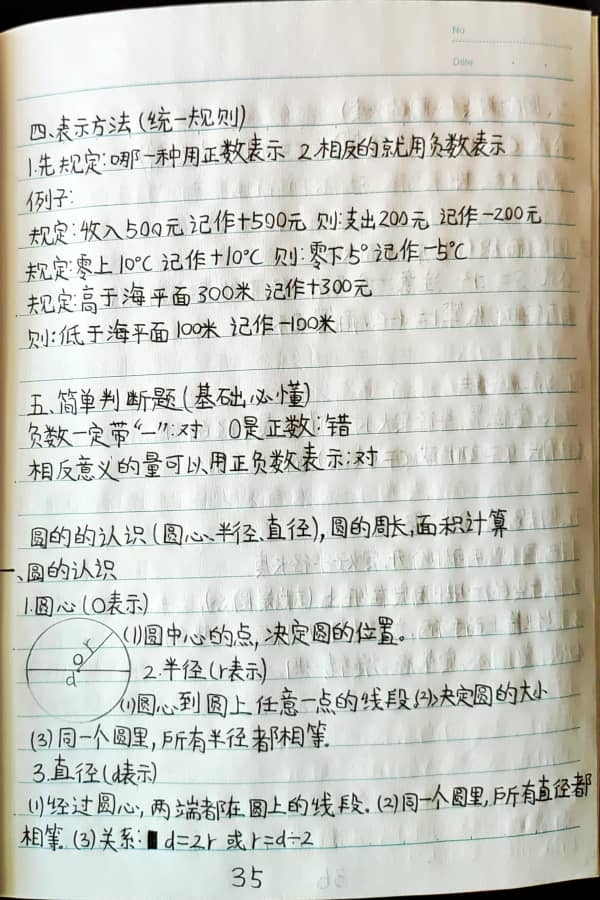 No
Date
四、表示方法(统一规则)
1.先规定:哪一种用正数表示 2.相反的就用负数表示
例子:
规定:收入500元 记作+500元 则:支出200元 记作-200元
规定:零上10℃ 记作+10℃ 则:零下5° 记作-5℃
规定:高于海平面300米 记作+300元
则:低于海平面100米 记作-100米
五、简单判断题(基础必懂)
负数一定带“-”:对 0是正数:错
相反意义的量可以用正负数表示:对
圆的的认识(圆心、半径、直径),圆的周长,面积计算
一、圆的认识
1.圆心(O表示)
(1)圆中心的点,决定圆的位置。
O r d
2.半径(r表示)
(1)圆心到圆上任意一点的线段(2)决定圆的大小
(3)同一个圆里,所有半径都相等。
3.直径(d表示)
(1)经过圆心,两端都在圆上的线段。(2)同一个圆里,所有直径都
相等。(3)关系: d=2r 或 r=d÷2
35